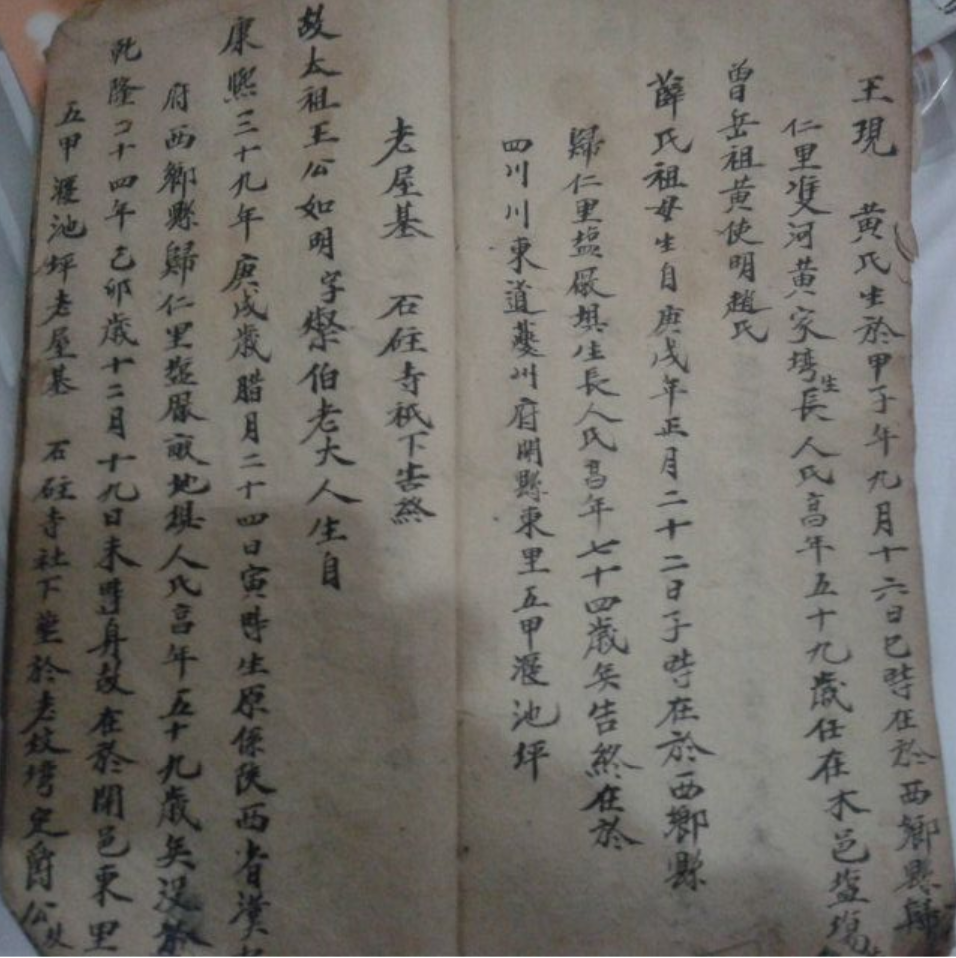 王現　黄氏生於甲子年九月十六日巳時在於西鄉縣歸
仁里雙河黄家塆生長人氏高年五十九歲任在木邑塩塲
曾岳祖黄使明趙氏
薛氏祖母生自庚戌年正月二十二日子時在於西鄉縣
歸仁里塩厰垻生長人氏高年七十四歲矣告終在於
四川川東道夔州府開縣東里五甲漫池坪
老屋基　石砫寺祇下告終
故太祖王公如明字榮伯老大人生自
康熙三十九年庚戌歲腊月二十四日寅時生原係陕西省漢
府西鄉縣歸仁里塩厰畝地垻人氏高年五十九歲矣没於
乾隆二十四年己卯歲十二月十九日未時身故在於開邑東里
五甲漫池坪老屋基　石砫寺社下塟於老坟塆史爵公